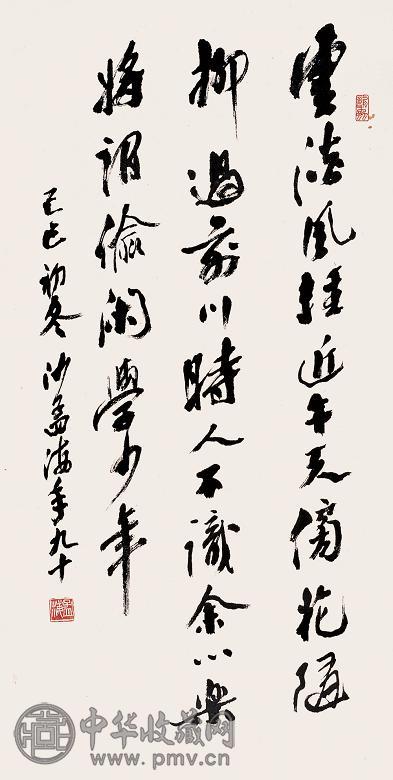 雲淡風輕近午天傍花隨
柳過前川時人不識余心樂
將謂偷閑學少年
己巳初冬沙孟海年九十
中华收藏网
www.pmv.cn